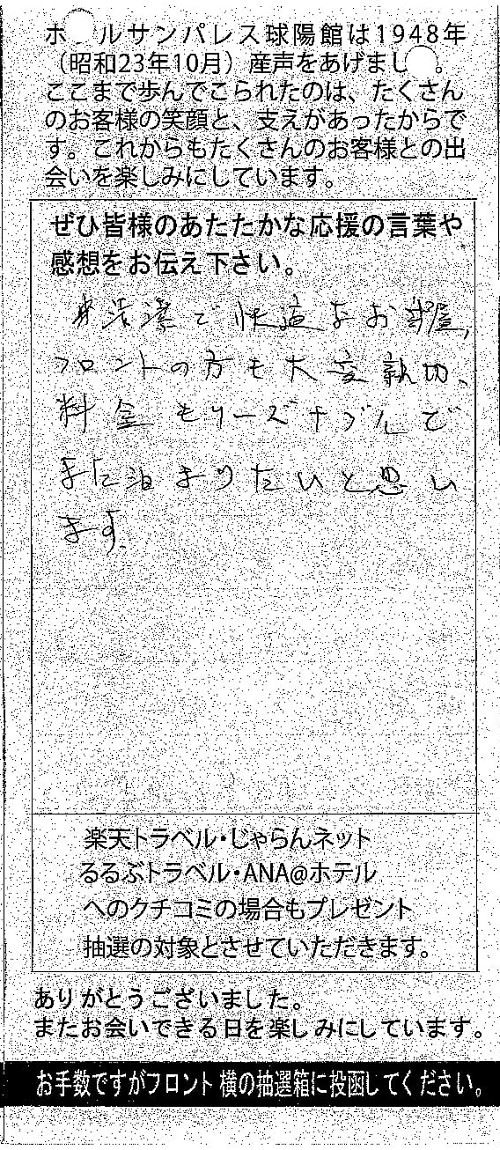 ホ ルサンパレス球陽館は1948年
（昭和23年10月）産声をあげまし 。
ここまで歩んでこられたのは、たくさん
のお客様の笑顔と、支えがあったからで
す。これからもたくさんのお客様との出
会いを楽しみにしています。
ぜひ皆様のあたたかな応援の言葉や
感想をお伝え下さい。
清潔で快適なお部屋、
フロントの方も大変親切、
料金もリーズナブルで
また泊まりたいと思い
ます。
楽天トラベル・じゃらんネット
るるぶトラベル・ANA@ホテル
へのクチコミの場合もプレゼント
抽選の対象とさせていただきます。
ありがとうございました。
またお会いできる日を楽しみにしています。
お手数ですがフロント横の抽選箱に投函してください。